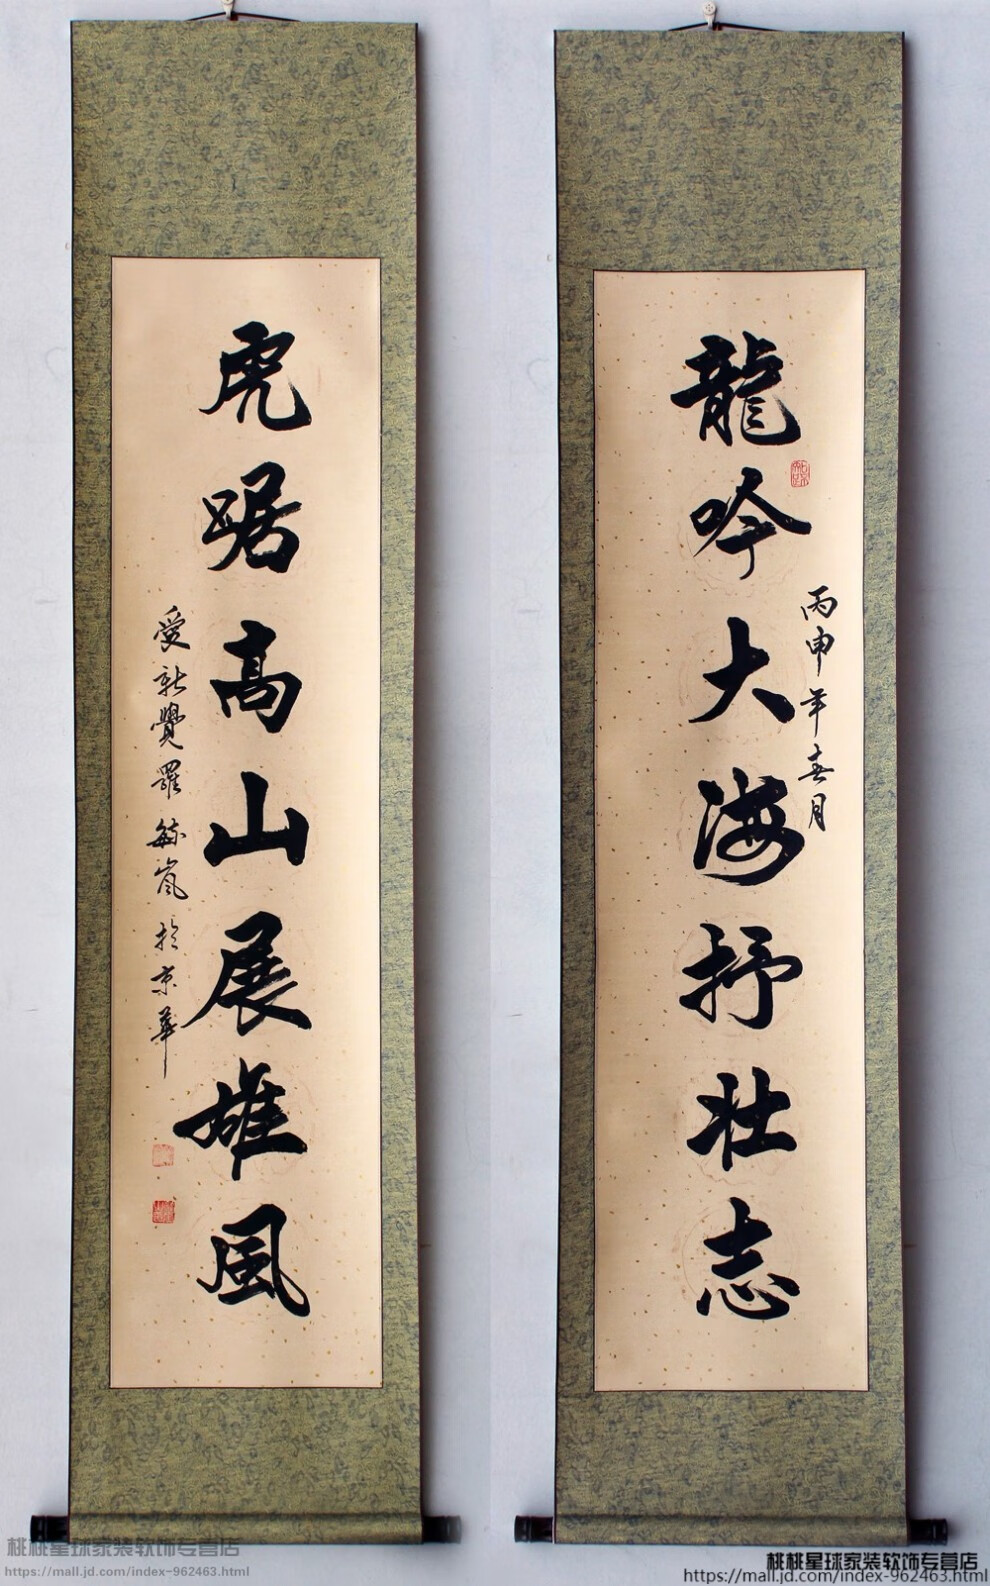 丙申年春月
龍吟大海抒壮志
虎踞高山展雄風
愛新覺羅毓嵐於京華
桃桃星球家装软饰专营店
https://mall.jd.com/index-962463.html
桃桃星球家装软饰专营店
https://mall.jd.com/index-962463.html